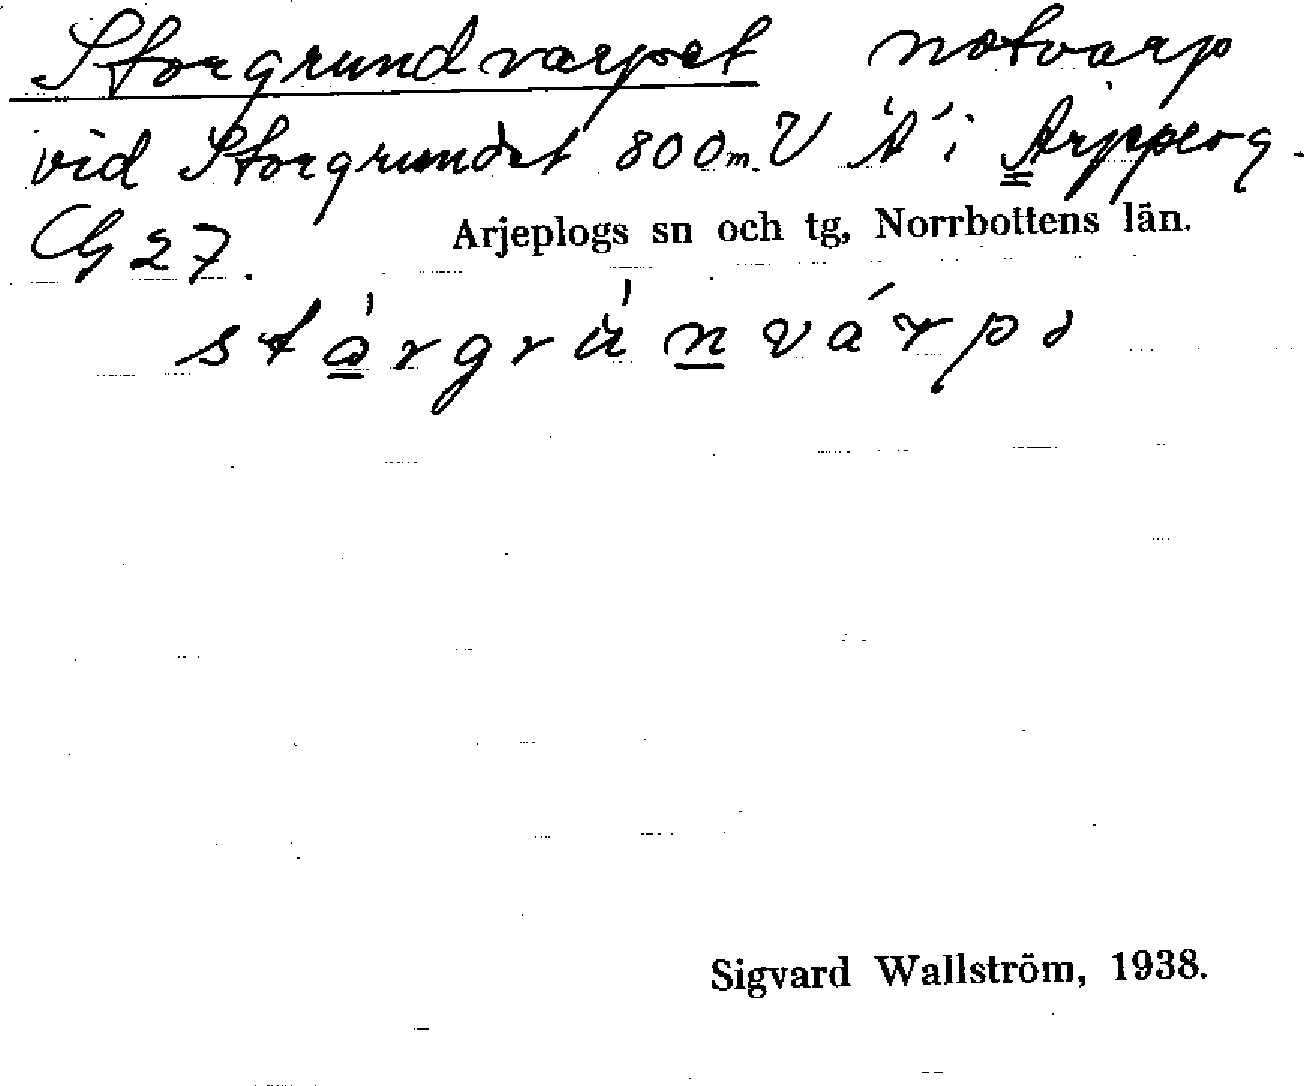 Storgrundvarpet notvarp
vid Storgrundet 800 m. V 'A' i Arjeplog.
G 27.
Arjeplogs sn och tg, Norrbottens län.
stårgrùnvárpə
Sigvard Wallström, 1938.